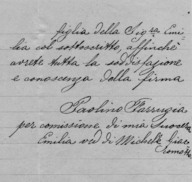 figlia della Sig.ra Emi
lia col sottoscritto, affinchè
avrete tutta la sodisfazione
e conoscenza della firma
Paolino Farrugia
per comissione di mia suocera
Emilia ved di Michele